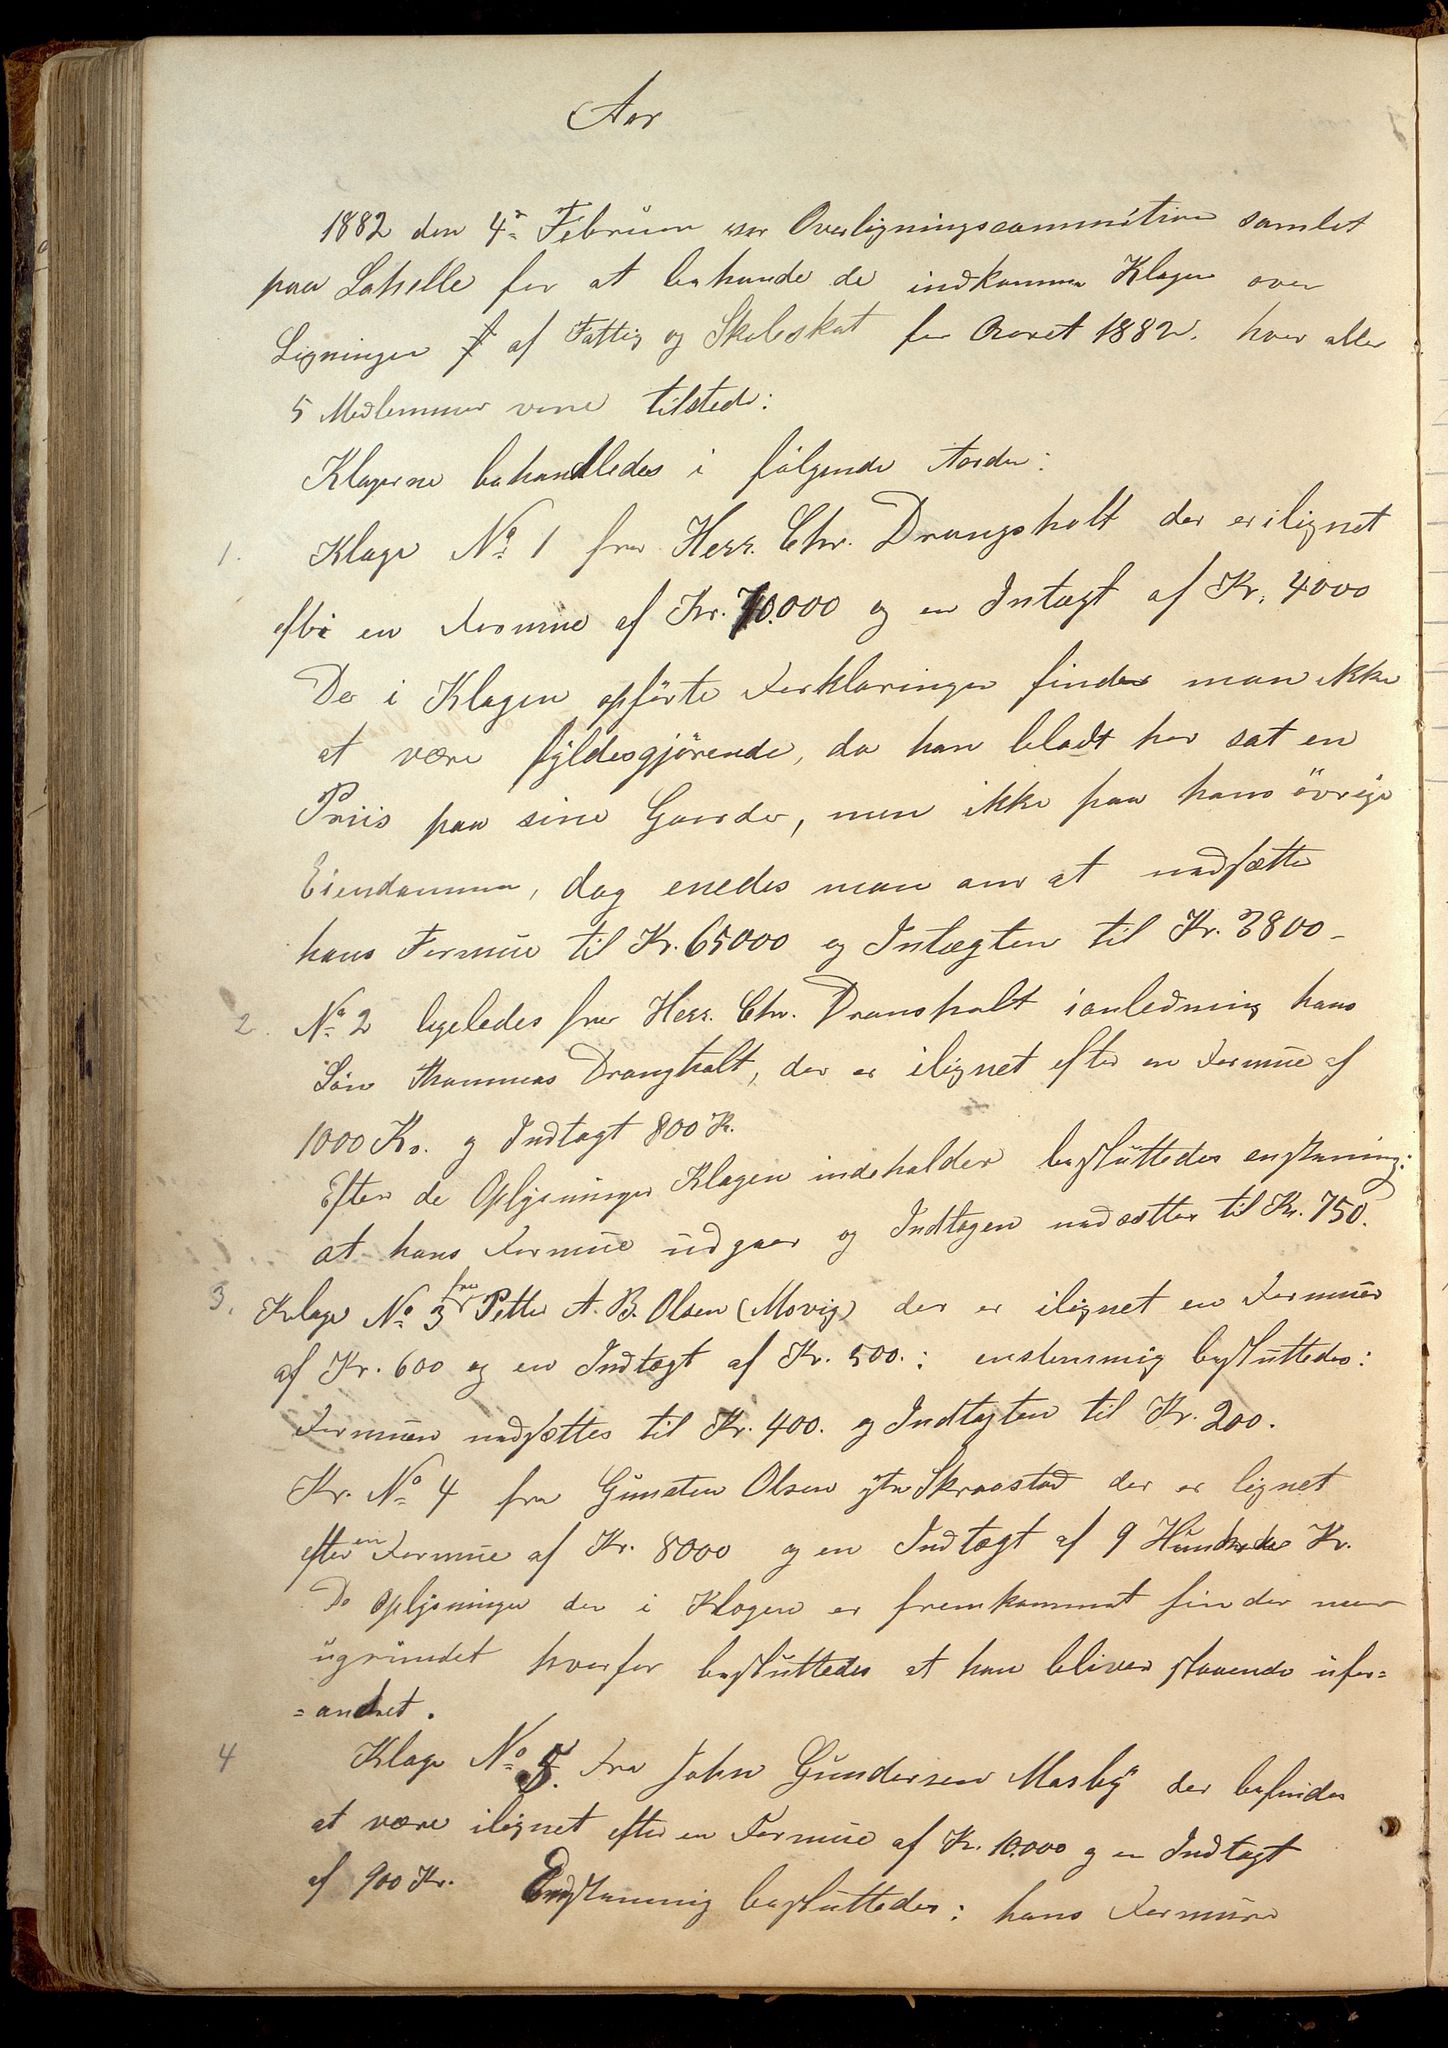 Aar
1882 den 4de Februar var Overligningscommitéen samlet
paa Lahelle for at behande de indkomne Klager over
Ligningen af Fattig og Skoleskat for Aaret 1882. hvor alle
5 Medlemmer vare tilstede:
Klagerne behandledes i følgende Aarden:
1. Klage No 1 fra Herr. Chr. Drangsholt der er ilignet
efter en Formue af Kr. 70.000 og en Intægt af Kr. 4000
De i Klagen opførte Forklaringer finder man ikke
at være fyldesgjørende, da han blodt har sat en
Priis paa sine Gaarde, men ikke paa hans övrige
Eiendomme, dog enedes man om at nedsætte
hans Formue til Kr. 65000 og Intægten til Kr. 3800 -
2. No 2 ligeledes fra Herr. Chr. Dransholt ianledning hans
Søn Thommas Drangholt, der er ilignet efter en Formue af
1000 Kr. og Indtægt 800 Kr.
Efter de Oplysninger Klagen indeholder besluttedes enstemig:
at hans Formue udgaar og Indtægen nedsættes til Kr. 750.
3. Klage No 3 fra Petter A. B. Olsen (Movig) der er ilignet en Formue
af Kr. 600 og en Indtægt af Kr. 500.: enstemmig besluttedes:
Formuen nedsættes til Kr. 400. og Indtægten til Kr. 200.
Kr. No 4 fra Gunsten Olsen ytr Skraastad der er lignet
efter en Formue af Kr. 8000 og en Indtægt af 9 Hundrede Kr.
De Oplysninger der i Klagen er fremkommet finder man
ugrundet hvorfor besluttedes at han bliver staaende ufor=
=andret.
4 Klage No 5. Fra John Gundersen Mosby der befindes
at være ilignet efter en Formue af Kr. 10.000 og en Indtægt
af 900 Kr. Enstemmig besluttedes: hans Formue